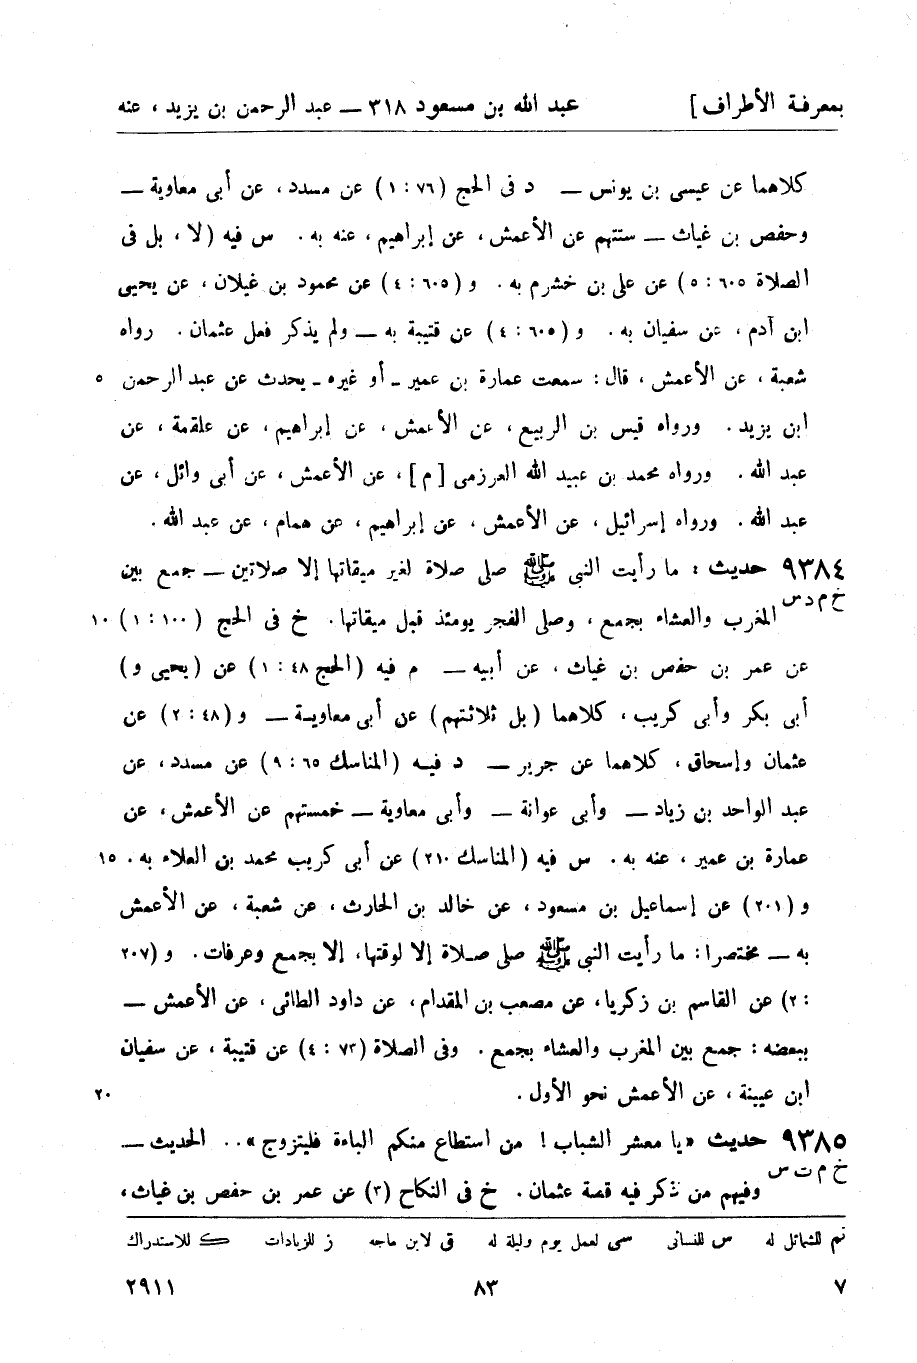 بمعرفة الأطراف] عبد الله بن مسعود ٣١٨ — عبد الرحمن بن يزيد ، عنه
كلاهما عن عيسى بن يونس — د فى الحج (٧٦ : ١) عن مسدد ، عن أبى معاوية —
وحفص بن غياث — ستتهم عن الأعمش ، عن إبراهيم ، عنه به . س فيه (لا ، بل فى
الصلاة ٦٠٥ : ٥) عن على بن خشرم به . و (٦٠٥ : ٤) عن محمود بن غيلان ، عن يحيى
ابن آدم ، عن سفيان به . و (٦٠٥ : ٤) عن قتيبة به — ولم يذكر فعل عثمان . رواه
شعبة ، عن الأعمش ، قال : سمعت عمارة بن عمير - أو غيره - يحدث عن عبد الرحمن ٥
ابن يزيد . ورواه قيس بن الربيع ، عن الأعمش ، عن إبراهيم ، عن علقمة ، عن
عبد الله . ورواه محمد بن عبيد الله العرزمى [م] ، عن الأعمش ، عن أبى وائل ، عن
عبد الله . ورواه إسرائيل ، عن الأعمش ، عن إبراهيم ، عن همام ، عن عبد الله .
٩٣٨٤ حديث : ما رأيت النبى ﷺ صلى صلاة لغير ميقاتها إلا صلاتين — جمع بين
خ م د س المغرب والعشاء بجمع ، وصلى الفجر يومئذ قبل ميقاتها . خ فى الحج (١٠٠ : ١) ١٠
عن عمر بن حفص بن غياث ، عن أبيه — م فيه (الحج ٤٨ : ١) عن (يحيى و)
أبى بكر وأبى كريب ، كلاهما (بل ثلاثتهم) عن أبى معاوية — و (٤٨ : ٢) عن
عثمان وإسحاق ، كلاهما عن جرير — د فيه (المناسك ٦٥ : ٩) عن مسدد ، عن
عبد الواحد بن زياد — وأبى عوانة — وأبى معاوية — خمستهم عن الأعمش ، عن
عمارة بن عمير ، عنه به . س فيه (المناسك ٢١٠) عن أبى كريب محمد بن العلاء به . ١٥
و (٢٠١) عن إسماعيل بن مسعود ، عن خالد بن الحارث ، عن شعبة ، عن الأعمش
به — مختصرا : ما رأيت النبى ﷺ صلى صلاة إلا لوقتها ، إلا بجمع وعرفات . و (٢٠٧
: ٢) عن القاسم بن زكريا ، عن مصعب بن المقدام ، عن داود الطائى ، عن الأعمش —
ببعضه : جمع بين المغرب والعشاء بجمع . وفى الصلاة (٧٣ : ٤) عن قتيبة ، عن سفيان
ابن عيينة ، عن الأعمش نحو الأول . ٢٠
٩٣٨٥ حديث «يا معشر الشباب ! من استطاع منكم الباءة فليتزوج» . . الحديث —
خ م ت س وفيهم من ذكر فيه قصة عثمان . خ فى النكاح (٣) عن عمر بن حفص بن غياث ،
تم للشمائل له س للنسائى سى لعمل يوم وليلة له ق لابن ماجه ز للزيادات ك للاستدراك
٧ ٨٣ ٢٩١١